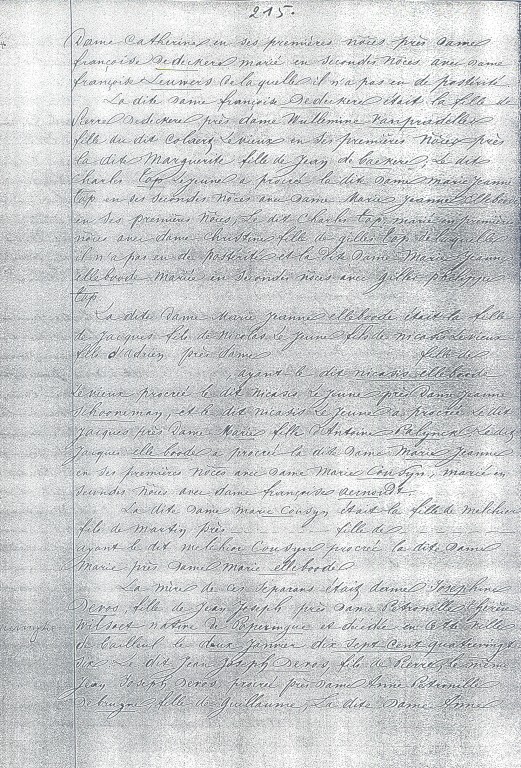 215.
Dame Catherine en ses premières nôces près dame
françoise Dedeckere marié en secondes Nôces avec dame
françoise Leuwers de laquelle il n'a pas eu de postérité
La dite Dame françoise Dedeckere était la fille de
Pierre Dedeckere près dame Wullemine Vanpradelles
fille du dit Colaert Levieux en ses premières Nôces près
la dite Marguerite fille de Jean de backere, Le dit
Charles top Lejeune a procréé la dite dame marie Jeanne
top en ses secondes nôces avec Dame Marie Jeanne Elleboode
en ses premières Nôces, Le dit Charles top marié en premières
nôces avec dame christine fille de gilles top de laquelle
il n'a pas eu de postérité et la dite Dame Marie Jeanne
elleboode mariée en secondes nôces avec gilles philippe
top
La dite Dame Marie Jeanne elleboode était la fille
de Jacques fils de Nicolas Le Jeune fils de nicolas Levieux
fille d'adrien près Dame fille de
, ayant le dit nicasis elleboode
Levieux procréé le dit nicasis Lejeune près Dame Jeanne
Schoonemay, et le dit nicasis Le Jeune a procréé Ledit
Jacques près Dame Marie fille d'Antoine Le dit
Jacques elleboode a procréé la dite Dame Marie Jeanne
en ses premières Nôces avec Dame Marie Cousyn, marié en
secondes Nôces avec dame françoise aernoudt.
La dite Dame marie Cousyn était la fille de melchior
fils de Martin près fille de
ayant le dit melchior Cousyn procréé la dite Dame
Marie près Dame Marie elleboode
La mère de ces séparans était dame Josephine
Devos, fille de Jean Joseph près Dame Petronille thérèse
Wilsoet native de Poperingue et décédée en cette Ville
de Bailleul le deux Janvier dix Sept Cent quatrevingt
Dix Le dit Jean Joseph Devos, fils de Pierre, le même
Jean Joseph Devos procréé près Dame Anne Petronille
fille de Guillaume, La dite Dame Anne